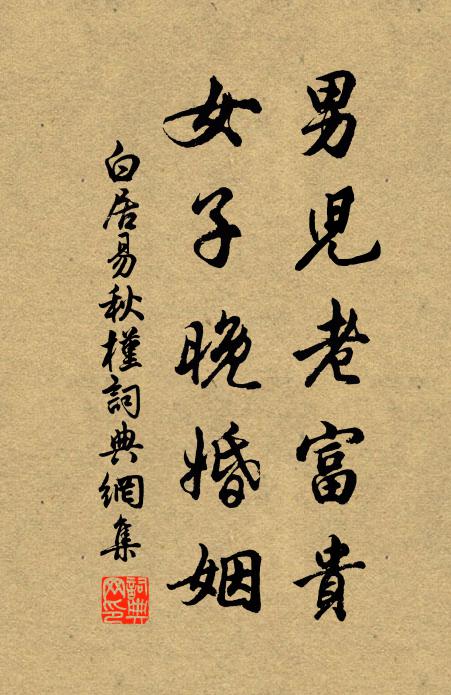 男兒老富貴
女子晚婚姻
白居易秋槿詞典網集
詞典网印